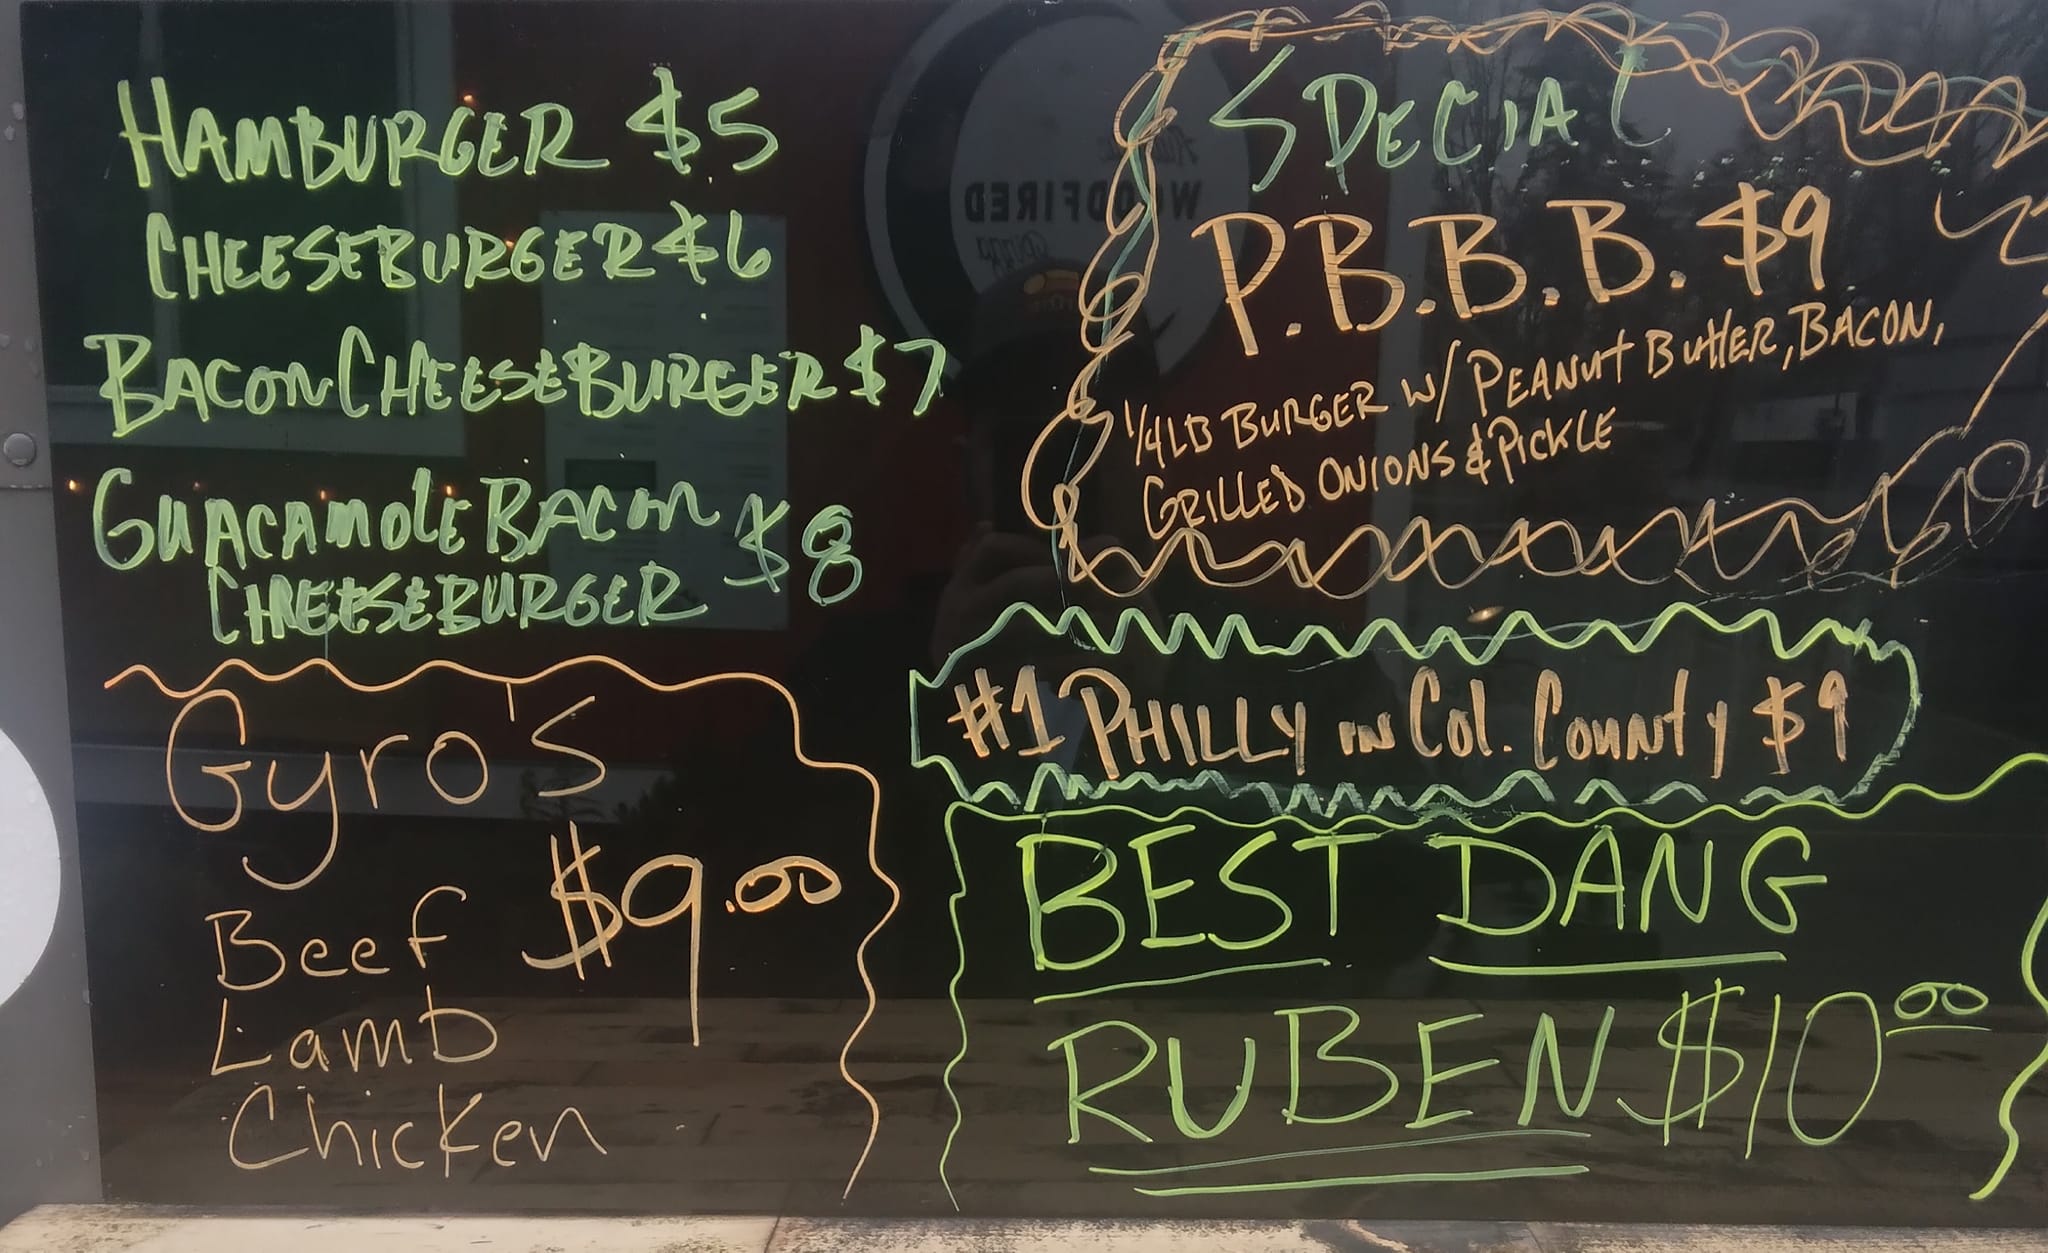 HAMBURGER $5
CHEESEBURGER $6
BACON CHEESEBURGER $7
GUACAMOLE BACON
CHEESEBURGER $8
Gyro's
$9.00
Beef
Lamb
Chicken
SPECIAL
P.B.B.B. $9
1/4 LB BURGER W/ PEANUT BUTTER, BACON,
GRILLED ONIONS & PICKLE
#1 PHILLY IN COL. COUNTY $9
BEST DANG
RUBEN $10.00
WOODFIRED